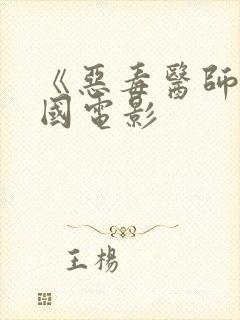 《惡毒醫師
國電影
王楊